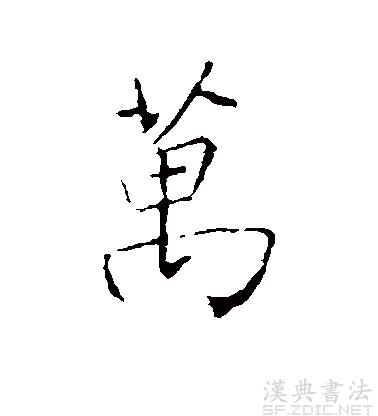 萬
漢典書法
SF.ZDIC.NET